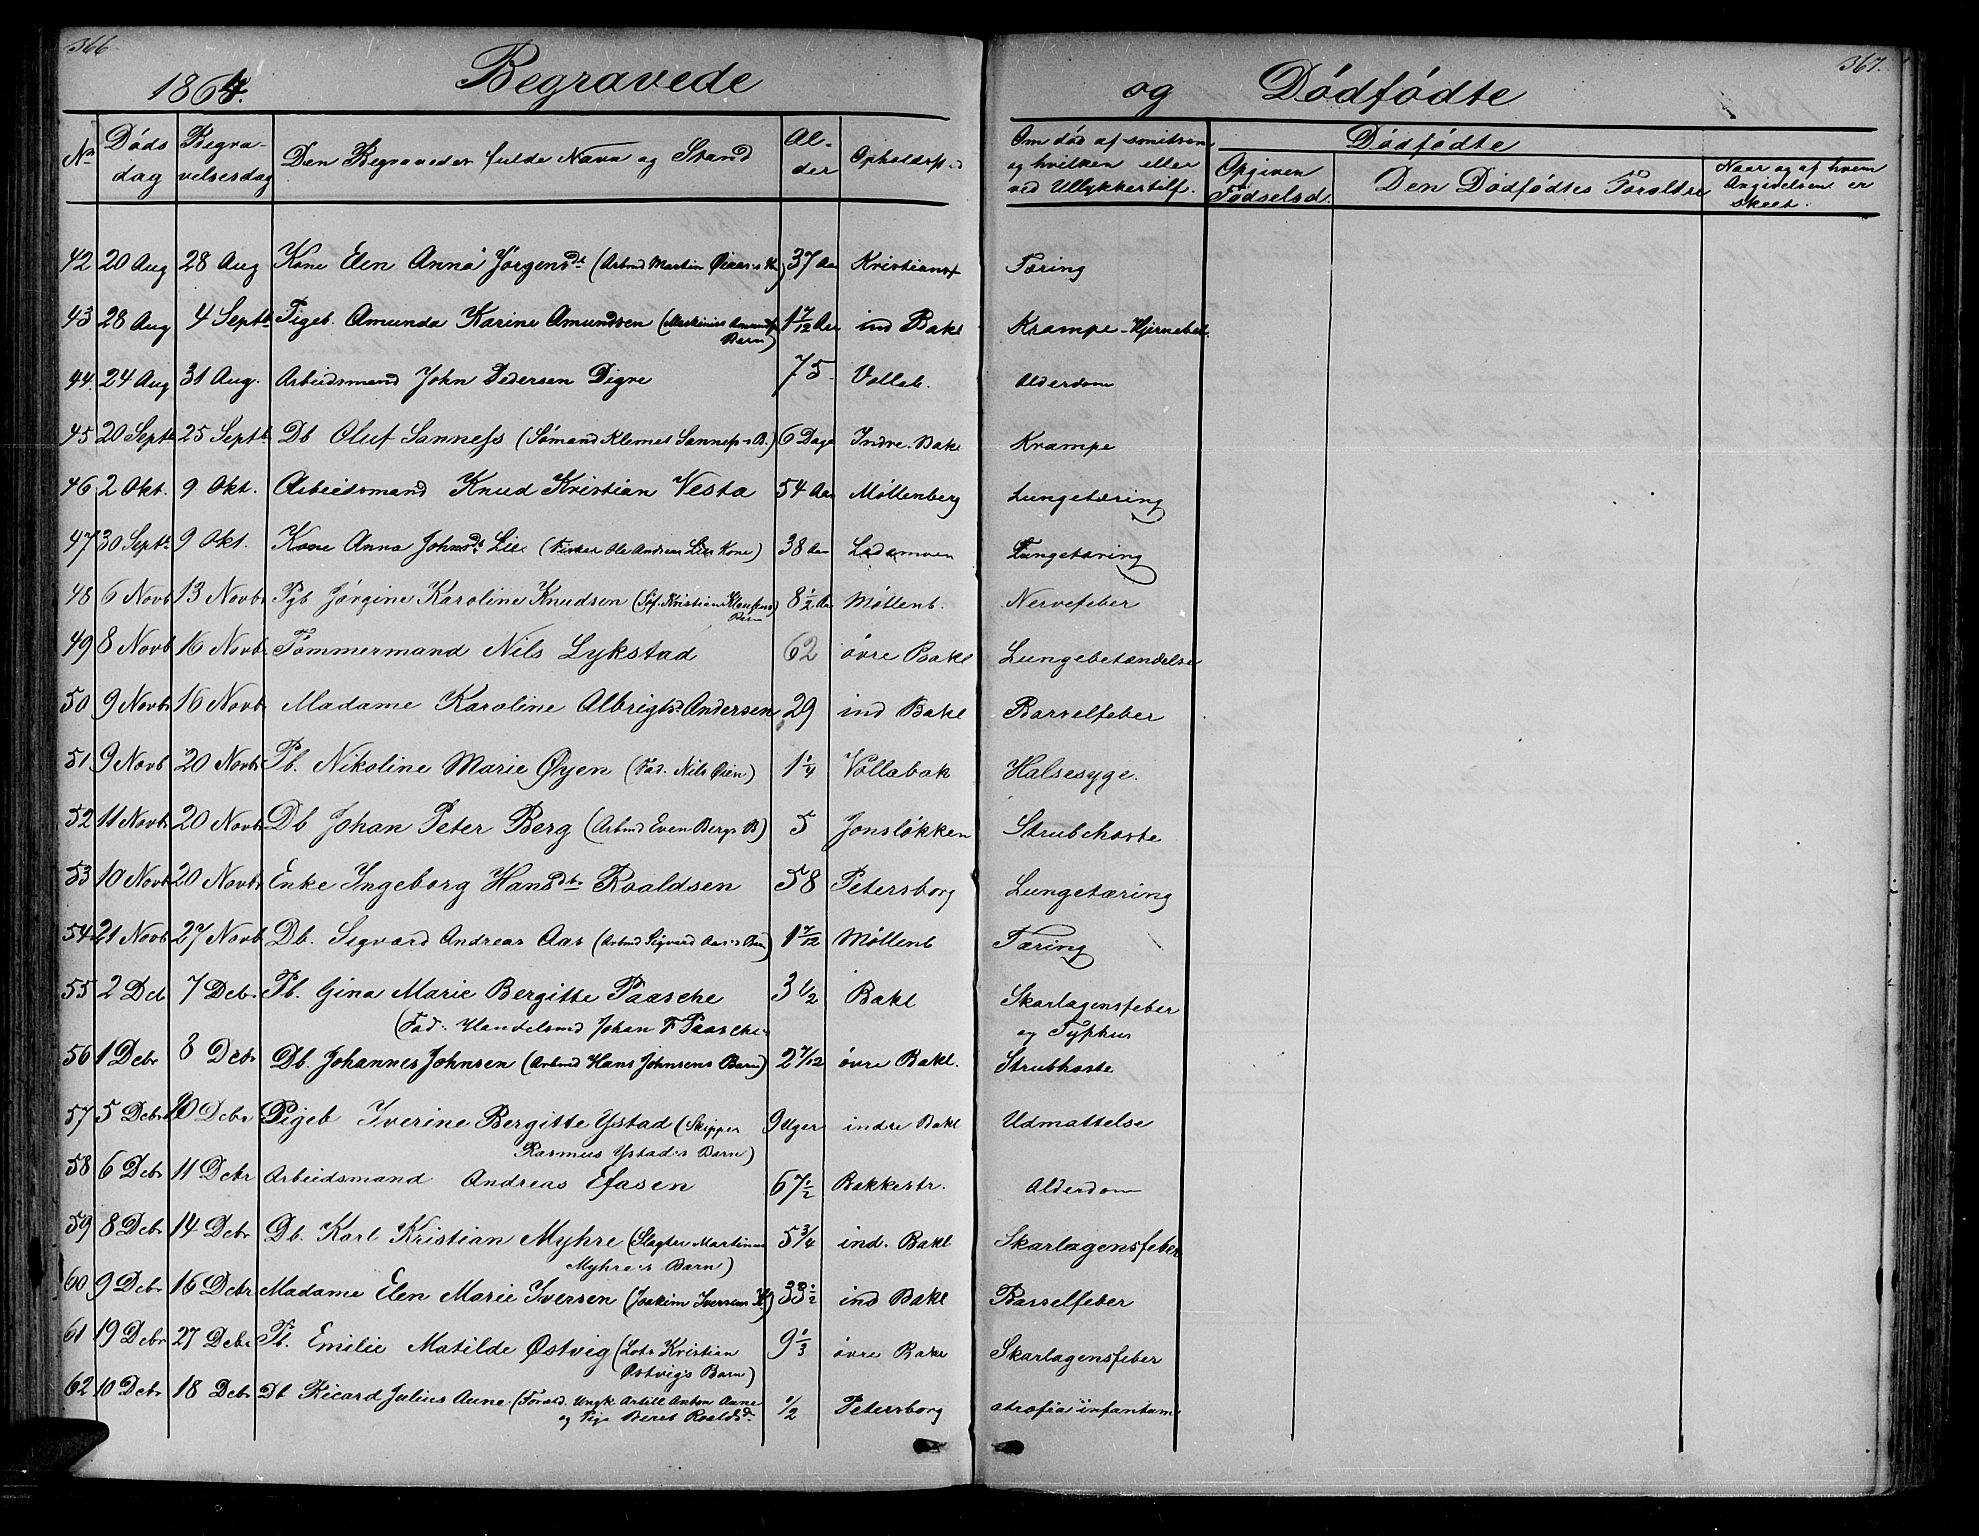 366
1864.
Begravede
No
Døds dag
Begravelsesdag
Den Begravedes fulde Navn og Stand
Alder
Opholdsst.
42 20 Aug 28 Aug Kone Elen Anna Jørgensdt (Arbmd Martin Øiaas's K.) 37 Aar Kristianst
43 28 Aug 4 Septb Pigeb. Amunda Karine Amundsen (Maskinist Amunds. 1 7/12 Aar ind Bakl
Barn)
44. 24 Aug 31 Aug. Arbeidsmand John Pedersen Digre 75 Vollab.
45 20 Septb 25 Septb Db Oluf Sanness (Sømand Klemet Sanness's B.) 6 Dage Indre. Bakl
46 2 Okt. 9 Okt. Arbeidsmand Knud Kristian Vesta 54 Aar Møllenberg
47 30 Septb 9 Okt. Kone Anna Johnsdt Lie (Fisker Ole Andreas Lies Kone) 38 Aar Ladamoen
48 6 Novb 13 Novbr Pgb Jørgine Karoline Knudsen (Søf. Kristian Klausens 8 1/2 Aar Møllenb.
Barn
49 8 Novb 16 Novb. Tømmermand Nils Lykstad 62 øvre Bakl
50 9 Novbr 16 Novb Madame Karoline Albrigtsd. Andersen 29 ind Bakl
51 9 Novb 20 Novbr Pb. Nikoline Marie Øyen (Fad. Nils Øien) 1 1/4 Vollabak
52 11 Novbr 20 Novbr Db Johan Peter Berg (Arbmd Even Bergs B) 5 Jonsløkken
53 10 Novbr 20 Novbr Enke Ingeborg Hansdtr Roaldsen 58 Petersborg
54 21 Novb 27 Novb Db. Sigvard Andreas Aas (Arbmd Sigvard Aas's Barn) 1 7/12 Møllenb
55 2 Deb 7 Debr Pb. Gina Marie Bergitte Paasche 3 1/2 Bakl
(Fad. Handelsmd Johan F Paasche
56 1 Debr 8 Debr Db. Johannes Johnsen (Arbmd Hans Johnsens Barn) 2 7/12 øvre Bakl.
57 5 Debr 10 Debr Pigeb Iverine Bergitte Ystad (Skipper 9 Uger indre Bakl
Rasmus Ystad's Barn)
58 6 Debr 11 Debr Arbeidsmand Andreas Efasen 67 1/2 Bakkestr.
59 8 Debr 14 Debr Db. Karl Kristian Myhre (Slagter Martinus 5 3/4 ind. Bakl
Myhre's Barn)
60 9 Debr 16 Debr Madame Elen Marie Iversen (Joakim Iversens K) 33 1/2 ind Bakl
61 19 Debr 27 Debr Pb. Emilie Matilde Østvig (Lots Kristian 9 1/3 øvre Bakl
Østvigs Barn)
62 10 Debr 18 Debr Db Ricard Julius Aune (Foræld. Ungk Artill Anton Aune 1/2 Petersborg
og Pige Beret Roaldsd.
367.
og Dødfødte
Om død af smitsom
og hvilken eller
ved Ulykkestilf.
Dødfødte
Opgiven
Fødselsd.
Den Dødfødtes Forældre
Naar og af hvem
Angivelsen er
skeet.
Tæring
Krampe - Hjernebet.
Alderdom
Krampe
Lungetæring
Lungetæring
Nervefeber
Lungebetændelse
Barselfeber
Halsesyge.
Strubehoste
Lungetæring
Tæring
Skarlagensfeber
og Typhus
Strubhoste
Udmattelse
Alderdom
Skarlagensfeber
Barselfeber
Skarlagensfeber
atrofia infantum